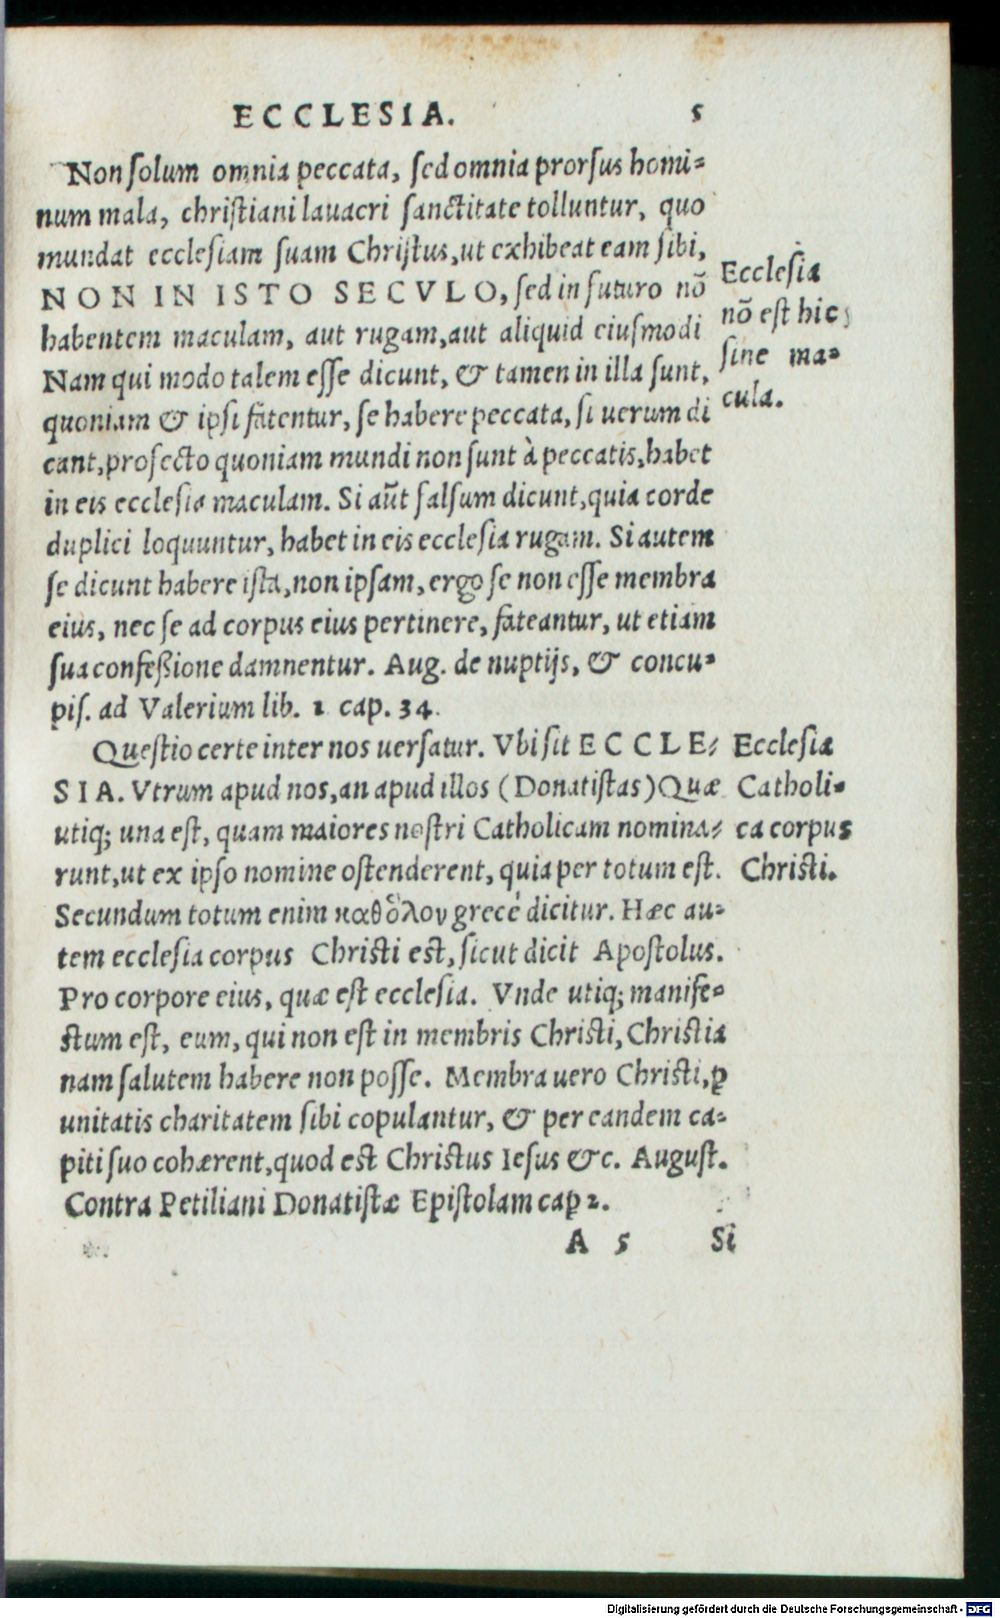 ECCLESIA. 5
Non solum omnia peccata, sed omnia prorsus homi-
num mala, christiani lauacri sanctitate tolluntur, quo
mundat ecclesiam suam Christus, ut exhibeat eam sibi,
NON IN ISTO SECVLO, sed in futuro nõ
habentem maculam, aut rugam, aut aliquid eiusmodi
Nam qui modo talem esse dicunt, & tamen in illa sunt,
quoniam & ipsi fatentur, se habere peccata, si uerum di
cant, profecto quoniam mundi non sunt à peccatis, habet
in eis ecclesia maculam. Si aũt falsum dicunt, quia corde
duplici loquuntur, habet in eis ecclesia rugam. Si autem
se dicunt habere ista, non ipsam, ergo se non esse membra
eius, nec se ad corpus eius pertinere, fateantur, ut etiam
sua confeßione damnentur. Aug. de nuptijs, & concu-
pis. ad Valerium lib. 1 cap. 34.
Ecclesia
nõ est hic
sine ma-
cula.
Questio certe inter nos uersatur. Vbi sit ECCLE-
SIA. Vtrum apud nos, an apud illos (Donatistas) Quæ
utiq; una est, quam maiores nostri Catholicam nomina-
runt, ut ex ipso nomine ostenderent, quia per totum est.
Secundum totum enim καθ ὅλου grecé dicitur. Hæc au-
tem ecclesia corpus Christi est, sicut dicit Apostolus.
Pro corpore eius, quæ est ecclesia. Vnde utiq; manife-
stum est, eum, qui non est in membris Christi, Christia
nam salutem habere non posse. Membra uero Christi, ꝑ
unitatis charitatem sibi copulantur, & per eandem ca-
piti suo cohærent, quod est Christus Iesus &c. August.
Contra Petiliani Donatistæ Epistolam cap 2.
Ecclesia
Catholi-
ca corpus
Christi.
A 5 Si
Digitalisierung gefördert durch die Deutsche Forschungsgemeinschaft - DFG